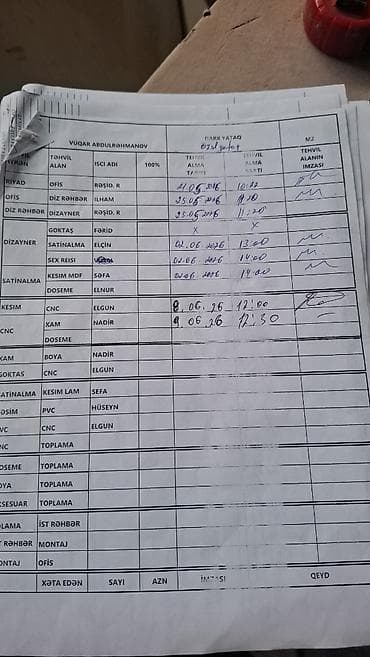 VÜQAR ABDULRƏHMANOV DARK YATAQ M2
TƏHVİL ALAN ISCI ADI 100% TEHVIL ALMA TARIXI TEHVIL ALMA SAATI TEHVIL ALANIN IMZASI
RIYAD OFİS RƏŞİD. R 21.05.2026
OFİS DİZ RƏHBƏR ILHAM 25.05.2026
DİZ RƏHBƏR DİZAYNER RƏŞİD. R 25.05.2026 11:20
DİZAYNER GOKTAŞ FƏRİD X X
SATINALMA ELÇİN 02.06.2026 13:00
SEX REISI 02.06.2026 14:00
SATINALMA KESIM MDF SƏFA 02.06.2026 14:00
DOSEME ELNUR
KESIM CNC ELGUN 8.06.26 12:00
CNC XAM NADİR 9.06.26 12:30
DOSEME
XAM BOYA NADİR
GOKTAS CNC ELGUN
SATINALMA KESIM LAM SEFA
PVC HÜSEYN
CNC ELGUN
TOPLAMA
DOSEME TOPLAMA
BOYA TOPLAMA
AKSESUAR TOPLAMA
TOPLAMA İST RƏHBƏR
İST RƏHBƏR MONTAJ
MONTAJ OFİS
XƏTA EDƏN SAYI AZN İMZASI QEYD